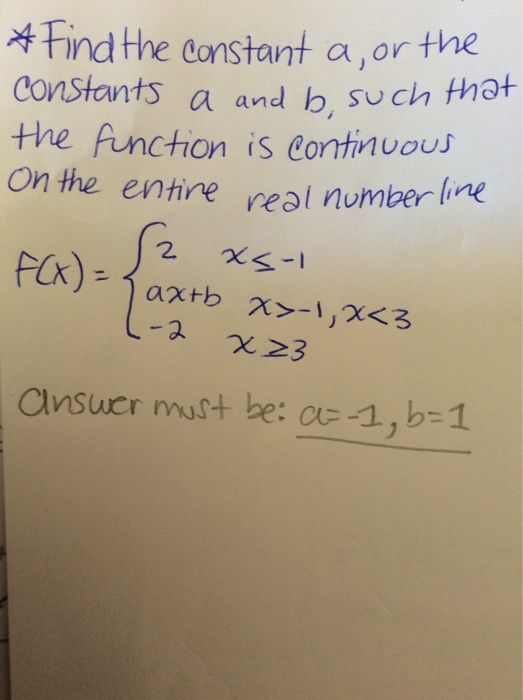 * Find the constant a, or the
constants a and b, such that
the function is continuous
On the entire real number line
f(x) = { 2 x ≤ -1
ax+b x > -1, x < 3
-2 x ≥ 3
answer must be: a = -1, b = 1